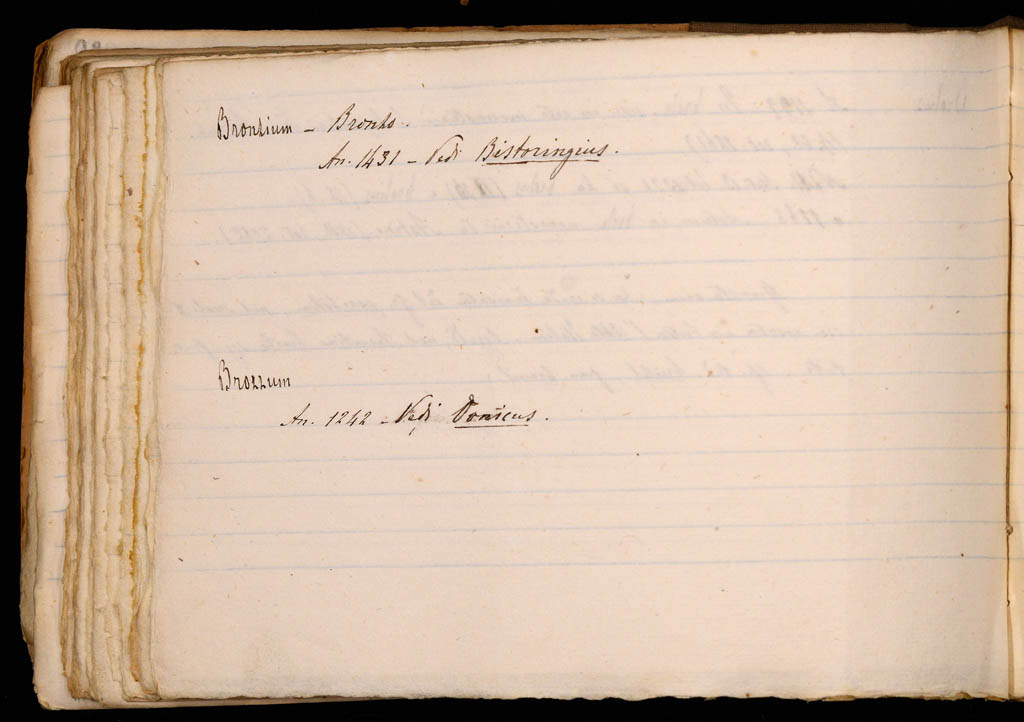 Brontium - Bronto.
An. 1431 - Vedi Bistoringius.
Brozzum
An. 1242 - Vedi Donicus.